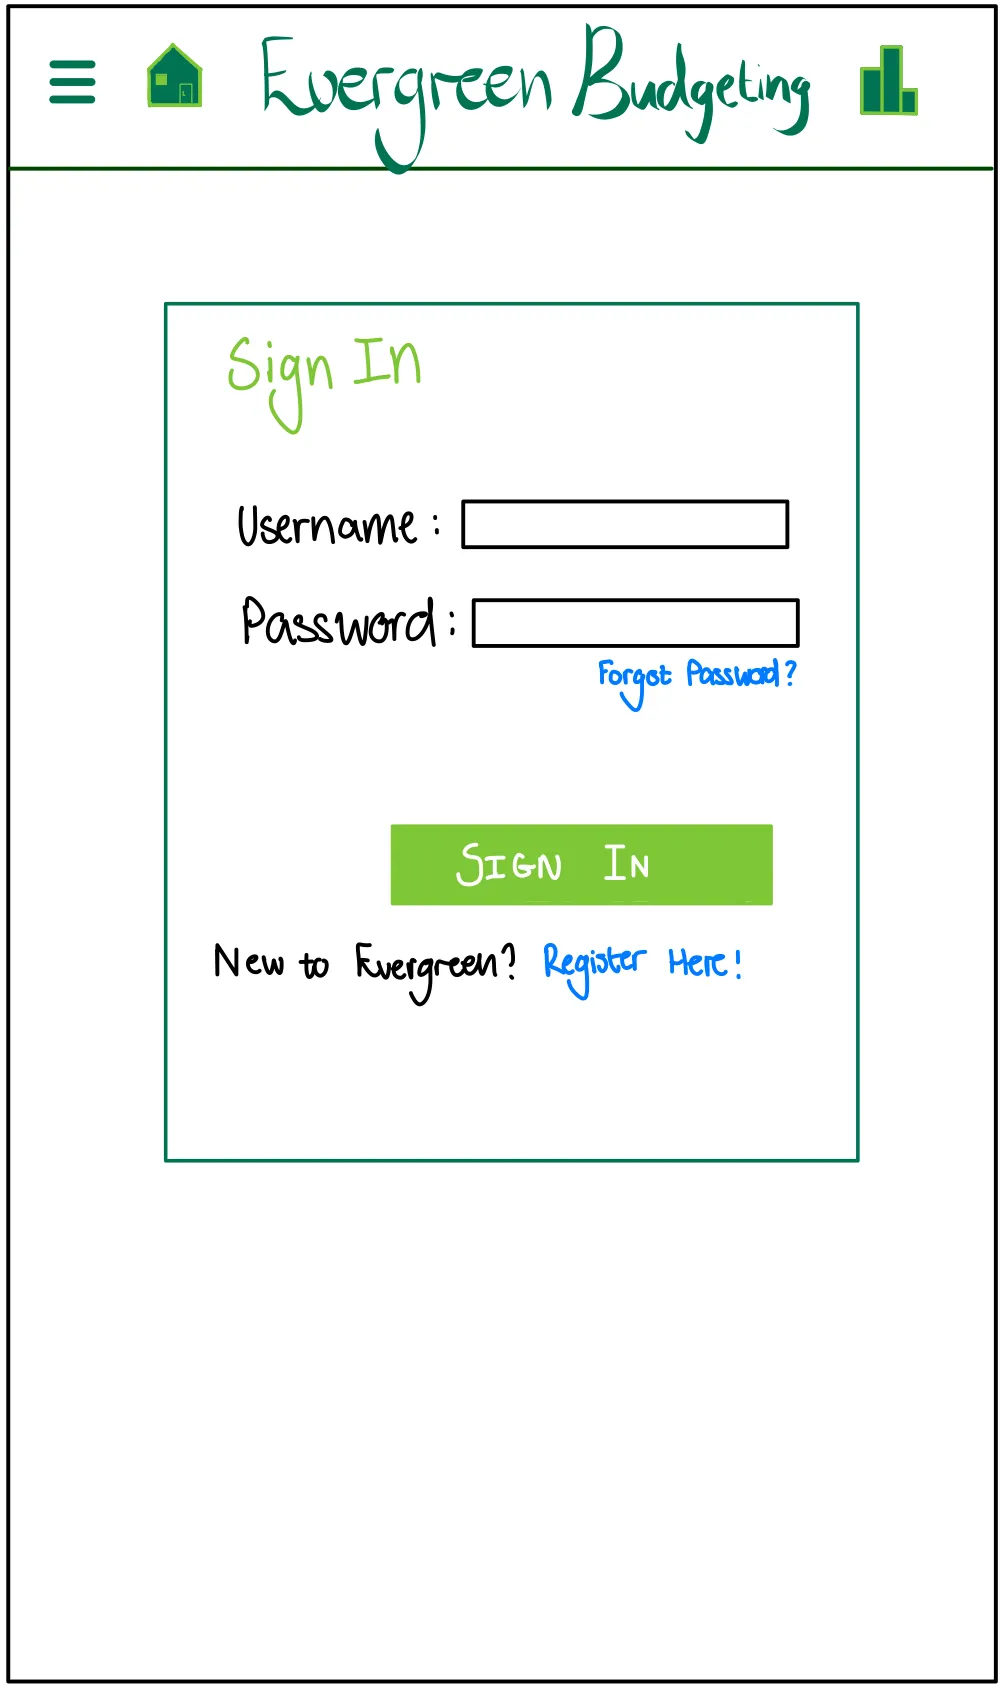 Evergreen Budgeting
Sign In
Username:
Password:
Forgot Password?
SIGN IN
New to Evergreen? Register Here!